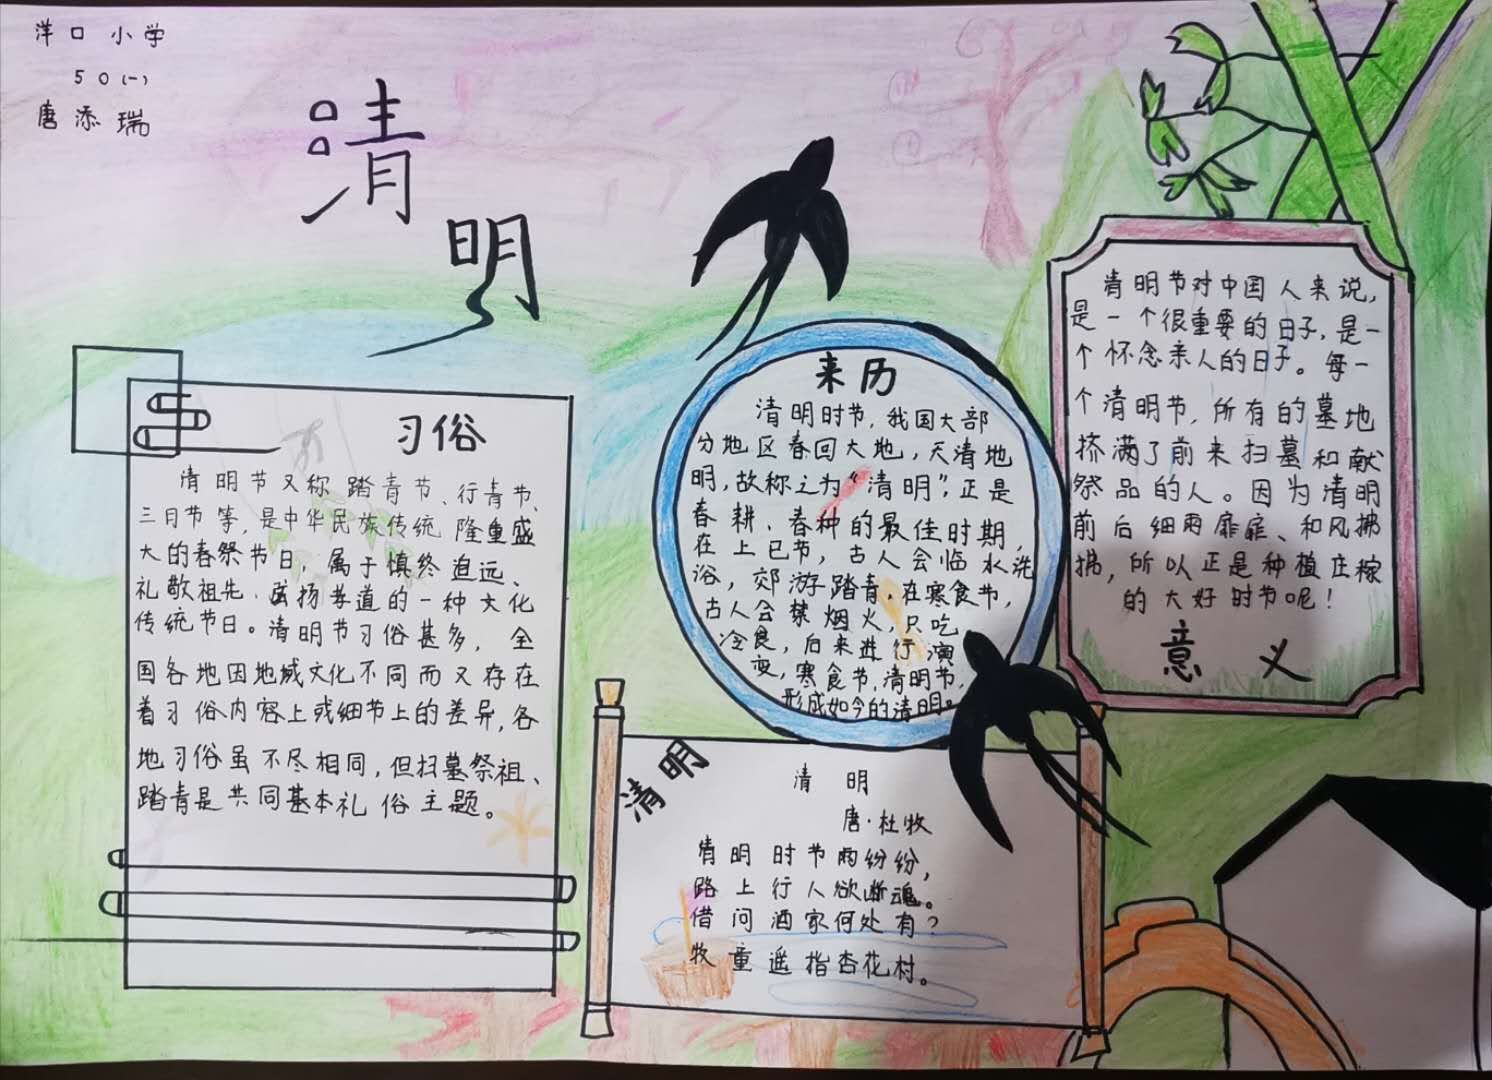 洋口小学
50(一)
唐添瑞
清明
习俗
清明节又称踏青节、行青节、
三月节等，是中华民族传统隆重盛
大的春祭节日，属于慎终追远、
礼敬祖先、弘扬孝道的一种文化
传统节日。清明节习俗甚多，全
国各地因地域文化不同而又存在
着习俗内容上或细节上的差异，各
地习俗虽不尽相同，但扫墓祭祖、
踏青是共同基本礼俗主题。
来历
清明时节，我国大部
分地区春回大地，天清地
明，故称之为“清明”，正是
春耕、春种的最佳时期，
在上巳节，古人会临水洗
浴，郊游踏青。在寒食节，
古人会禁烟火，只吃
冷食，后来进行演
变，寒食节，清明节，
形成如今的清明。
清明节对中国人来说，
是一个很重要的日子，是一
个怀念亲人的日子。每一
个清明节，所有的墓地
挤满了前来扫墓和献
祭品的人。因为清明
前后细雨霏霏、和风拂
拂，所以正是种植庄稼
的大好时节呢！
意义
清明
清明
唐·杜牧
清明时节雨纷纷，
路上行人欲断魂。
借问酒家何处有？
牧童遥指杏花村。